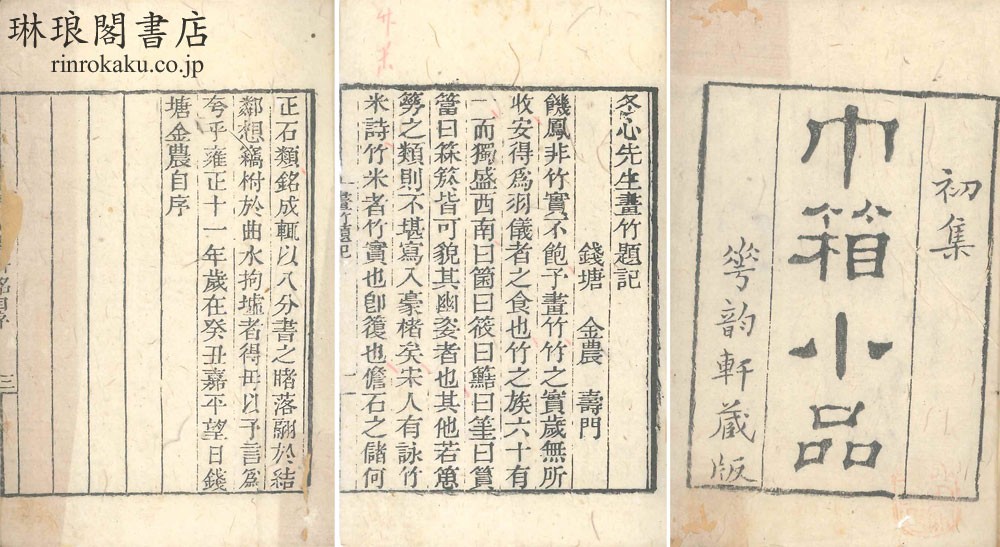 琳琅閣書店
rinrokaku.co.jp
初集
巾箱小品
華韵軒藏版
冬心先生畫竹題記
錢塘 金農 壽門
饑鳳非竹實不飽予畫竹竹之實歲無所
收安得爲羽儀者之食也竹之族六十有
一而獨盛西南曰箘曰筱曰曰筀曰篔
簹曰箖箊皆可貌其幽姿者也其他若
簩之類則不堪寫入豪楮矣宋人有詠竹
米詩竹米者竹實也卽也儋石之儲何
畫竹題記 一
正石類銘成輒以八分書之睹落翮於結
鄰想於曲水拘墟者得毋以予言爲
夸乎雍正十一年歲在癸丑嘉平望日錢
塘金農自序
銘自序 三